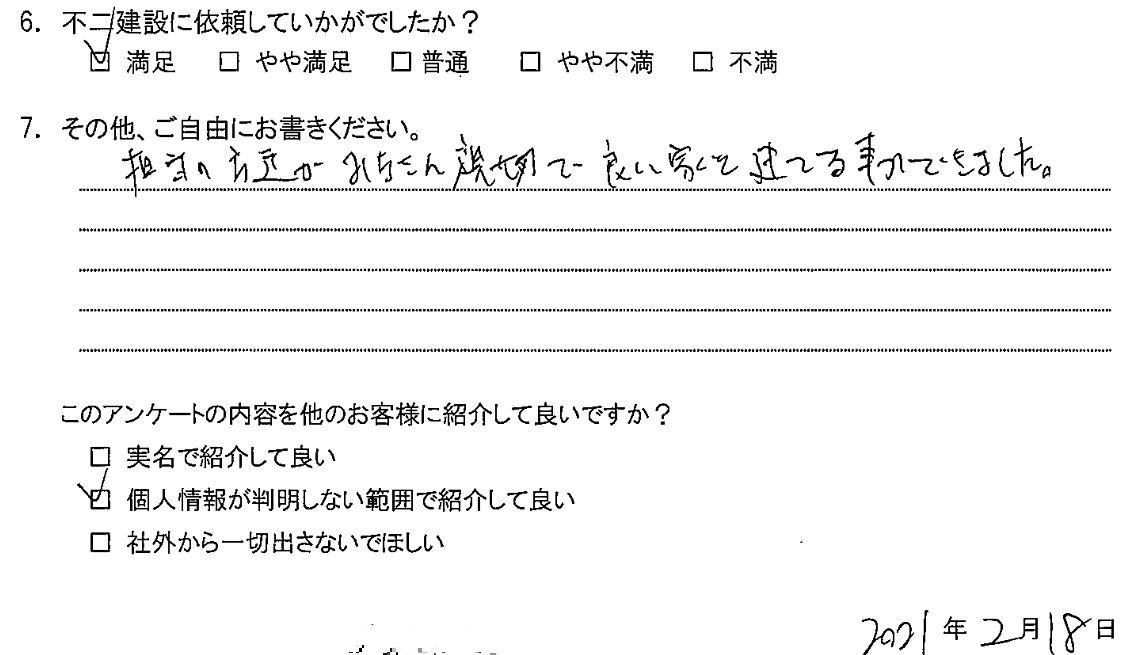 6. 不二建設に依頼していかがでしたか？
☑ 満足 □ やや満足 □ 普通 □ やや不満 □ 不満
7. その他、ご自由にお書きください。
担当の方達がみなさん親切で良い家を建てる事ができました。
このアンケートの内容を他のお客様に紹介して良いですか？
□ 実名で紹介して良い
☑ 個人情報が判明しない範囲で紹介して良い
□ 社外から一切出さないでほしい
2021年2月18日